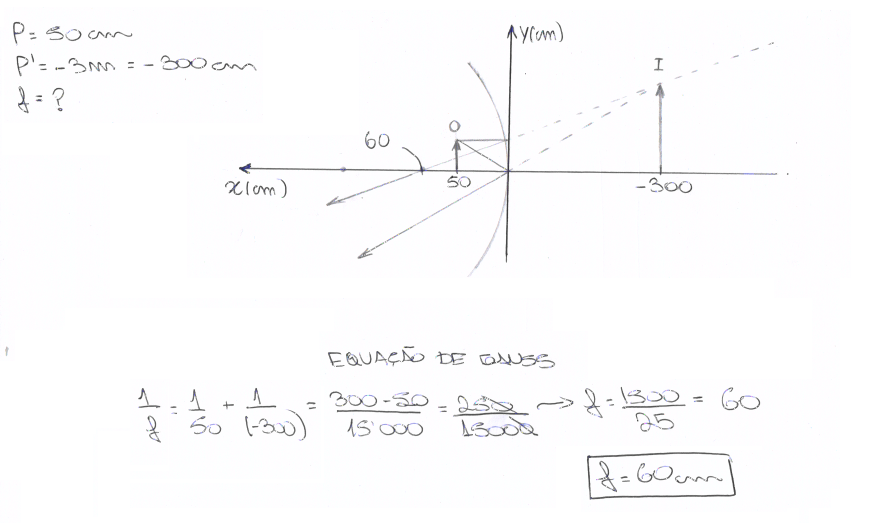 P = 50 cm
P' = -3m = -300 cm
f = ?
y(cm)
I
O
60
50
-300
x(cm)
EQUAÇÃO DE GAUSS
1/f = 1/50 + 1/(-300) = 300-50/15'000 = 250/15000 → f = 1500/25 = 60
f = 60 cm